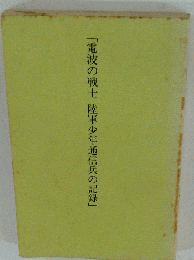 「電波の戦士 陸軍少年通信兵の記録」